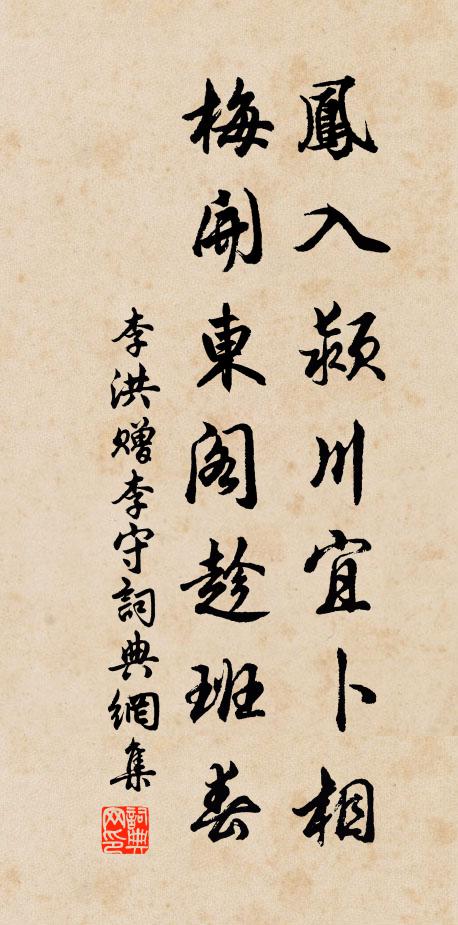 鳳入潁川宜卜相
梅開東閣趁班春
李洪贈李守詞典網集
詞典网印